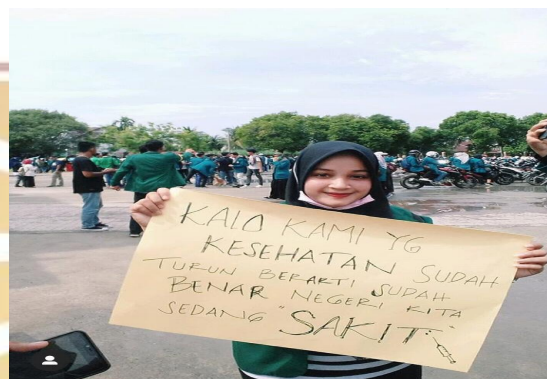 KALO KAMI YG
KESEHATAN SUDAH
TURUN BERARTI SUDAH
BENAR NEGERI KITA
SEDANG "SAKIT"